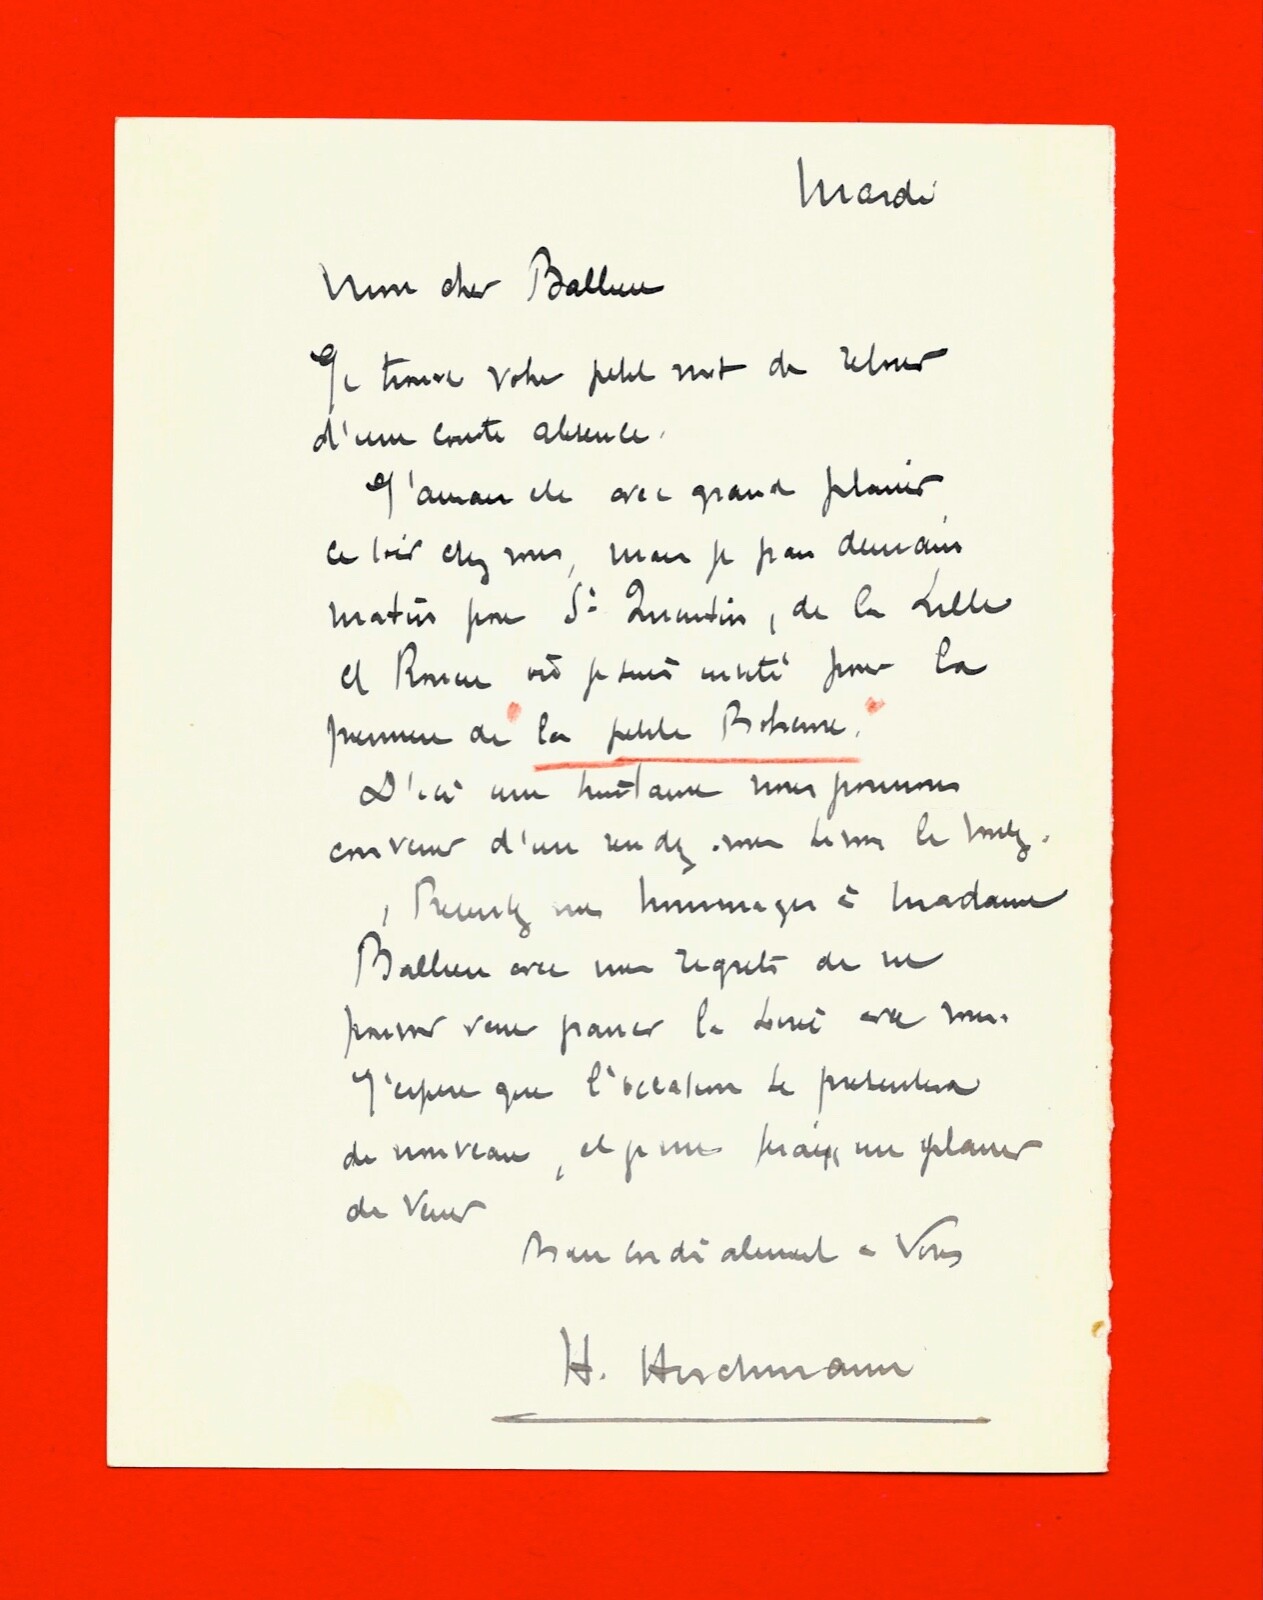 Mardi
Mon cher Ballieu
Je trouve votre petit mot de retour
d'une courte absence.
J'aurais été avec grand plaisir
ce soir chez vous, mais je pars demain
matin pour St Quentin, de là Lille
et Rouen où je suis invité pour la
première de "la petite Bohème."
D'ici une huitaine nous pourrons
convenir d'un rendez-vous si vous le voulez.
Présentez mes hommages à Madame
Ballieu avec mes regrets de ne
pouvoir venir passer la soirée avec vous.
J'espère que l'occasion se présentera
de nouveau, et je me ferai un plaisir
de venir
Bien cordialement à vous
H. Hirchmann